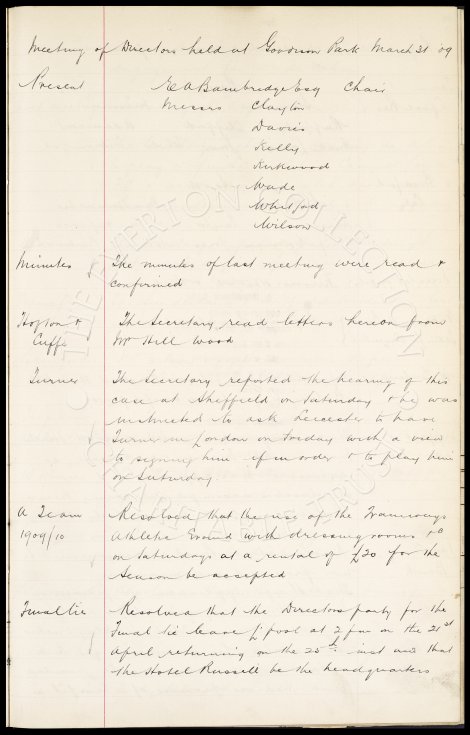 Meeting of Directors held at Goodison Park March 31 09
Present E A Bainbridge Esq Chair
Messrs Clayton
Davies
Kelly
Kirkwood
Wade
Whitford
Wilson
Minutes The minutes of last meeting were read &
confirmed
The Secretary read letters hereon from
Cuffe Mr Hill Wood
Turner The Secretary reported the hearing of this
case at Sheffield on Saturday & he was
instructed to ask Leicester to have
Turner in London on Friday with a view
to signing him if in order & to play him
on Saturday
A Team Resolved that the use of the Tramways
1909/10 Athletic Ground with dressing rooms &c
on Saturdays at a rental of £20 for the
Season be accepted
Final tie Resolved that the Directors party for the
Final tie leave L'pool at 2 pm on the 21st
April returning on the 25th inst and that
the Hotel Russell be the headquarters
THE EVERTON COLLECTION
CHARITABLE TRUST